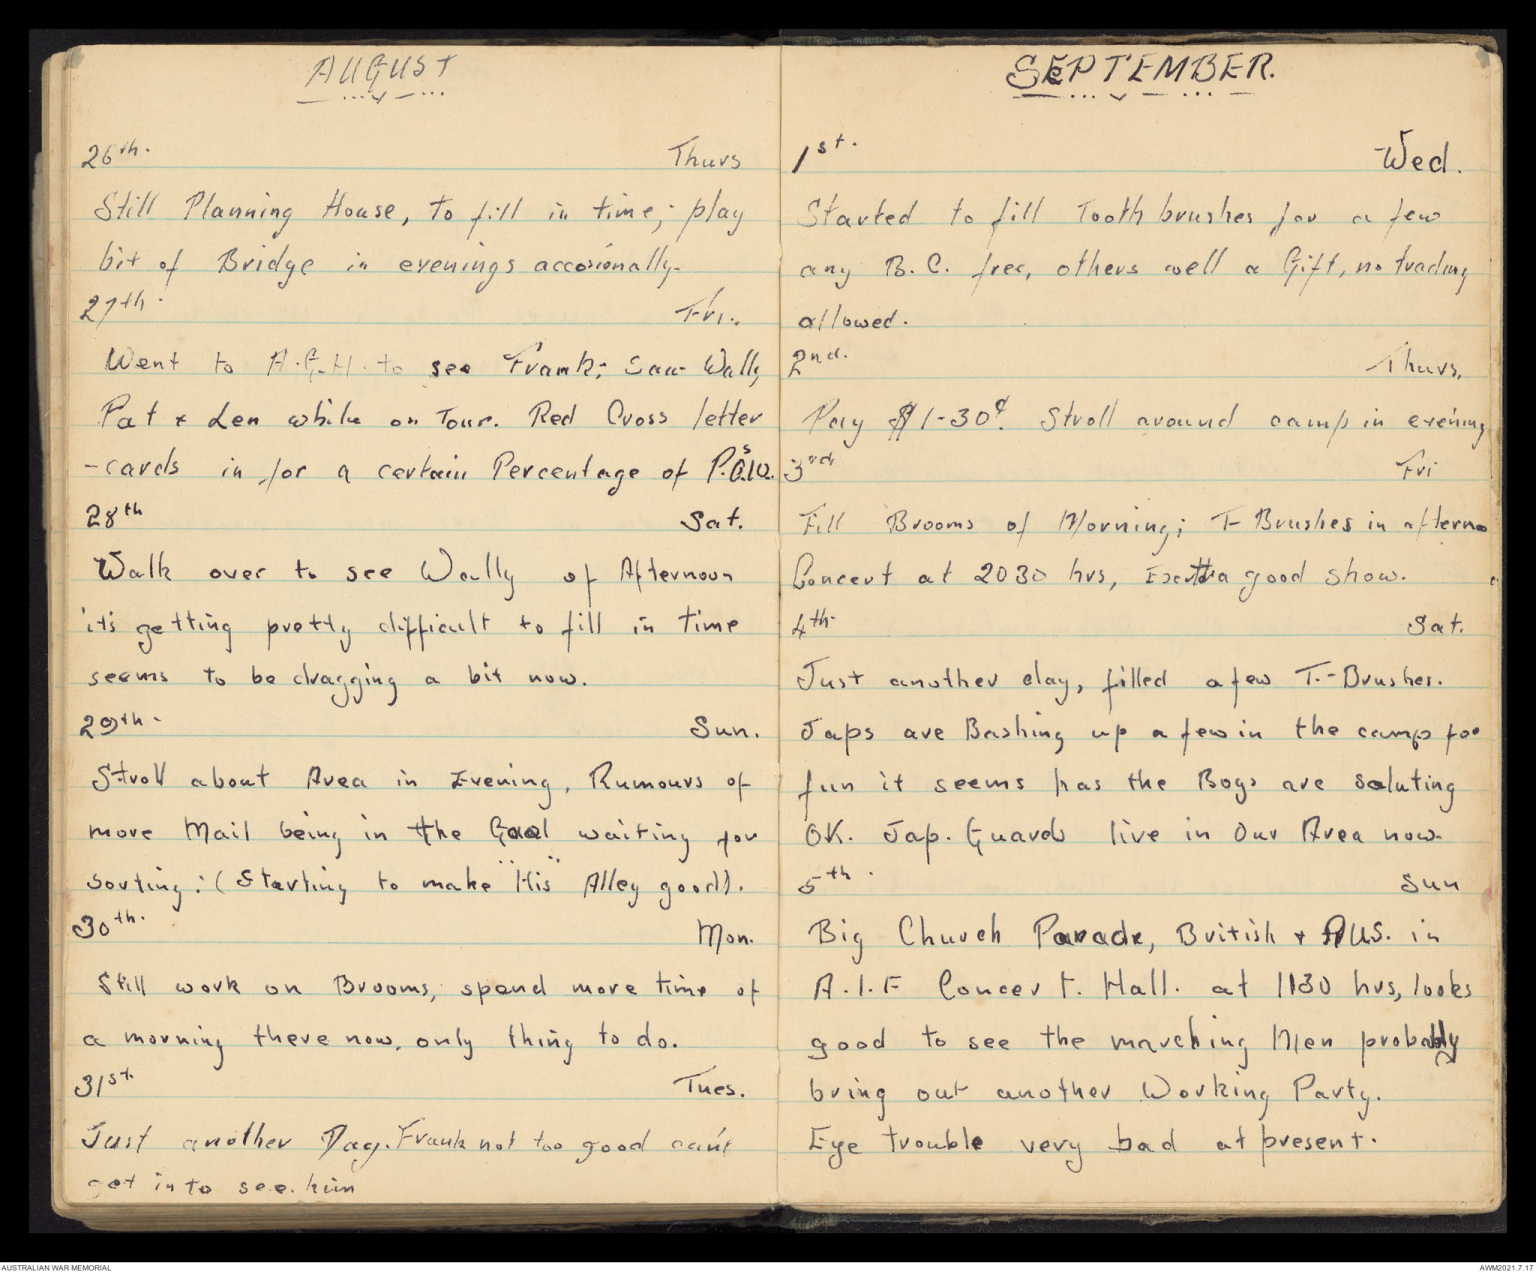 AUGUST
26th. Thurs
Still Planning House, to fill in time; play
bit of Bridge in evenings accosionally.
27th. Fri.
Went to A.G.H. to see Frank; Saw Wally
Pat & Len while on Tour. Red Cross letter
-cards in for a certain Percentage of P.O.W.s
28th Sat.
Walk over to see Wally of Afternoon
it's getting pretty difficult to fill in time
seems to be dragging a bit now.
29th. Sun.
Stroll about Area in Evening, Rumours of
more Mail being in the Gaol waiting for
sorting: (Starting to make "His" Alley good).
30th. Mon.
Still work on Brooms, spend more time of
a morning there now, only thing to do.
31st. Tues.
Just another Day. Frank not too good can't
get in to see him
SEPTEMBER.
1st. Wed.
Started to fill Tooth brushes for a few
any B.C. free, others well a Gift, no trading
allowed.
2nd. Thurs.
Pay $1-30¢. Stroll around camp in evening
3rd Fri
Fill Brooms of Morning; T-Brushes in afterno
Concert at 2030 hrs, Extra good show.
4th. Sat.
Just another day, filled a few T.-Brushes.
Japs are Bashing up a few in the camp for
fun it seems has the Boys are saluting
OK. Jap. Guards live in Our Area now.
5th. Sun
Big Church Parade, British & AUS. in
A.I.F Concert. Hall. at 1130 hrs, looks
good to see the marching Men probably
bring out another Working Party.
Eye trouble very bad at present.
AUSTRALIAN WAR MEMORIAL
AWM2021.7.17